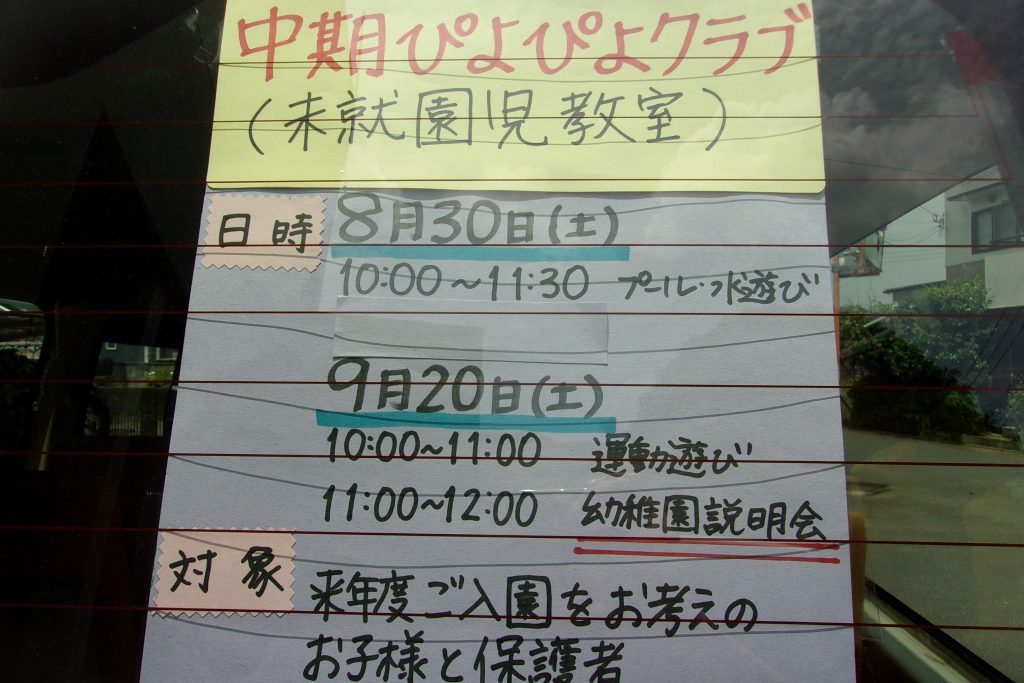 中期ぴよぴよクラブ
(未就園児教室)
日時 8月30日(土)
10:00～11:30 プール・水遊び
9月20日(土)
10:00～11:00 運動遊び
11:00～12:00 幼稚園説明会
対象 来年度ご入園をお考えの
お子様と保護者